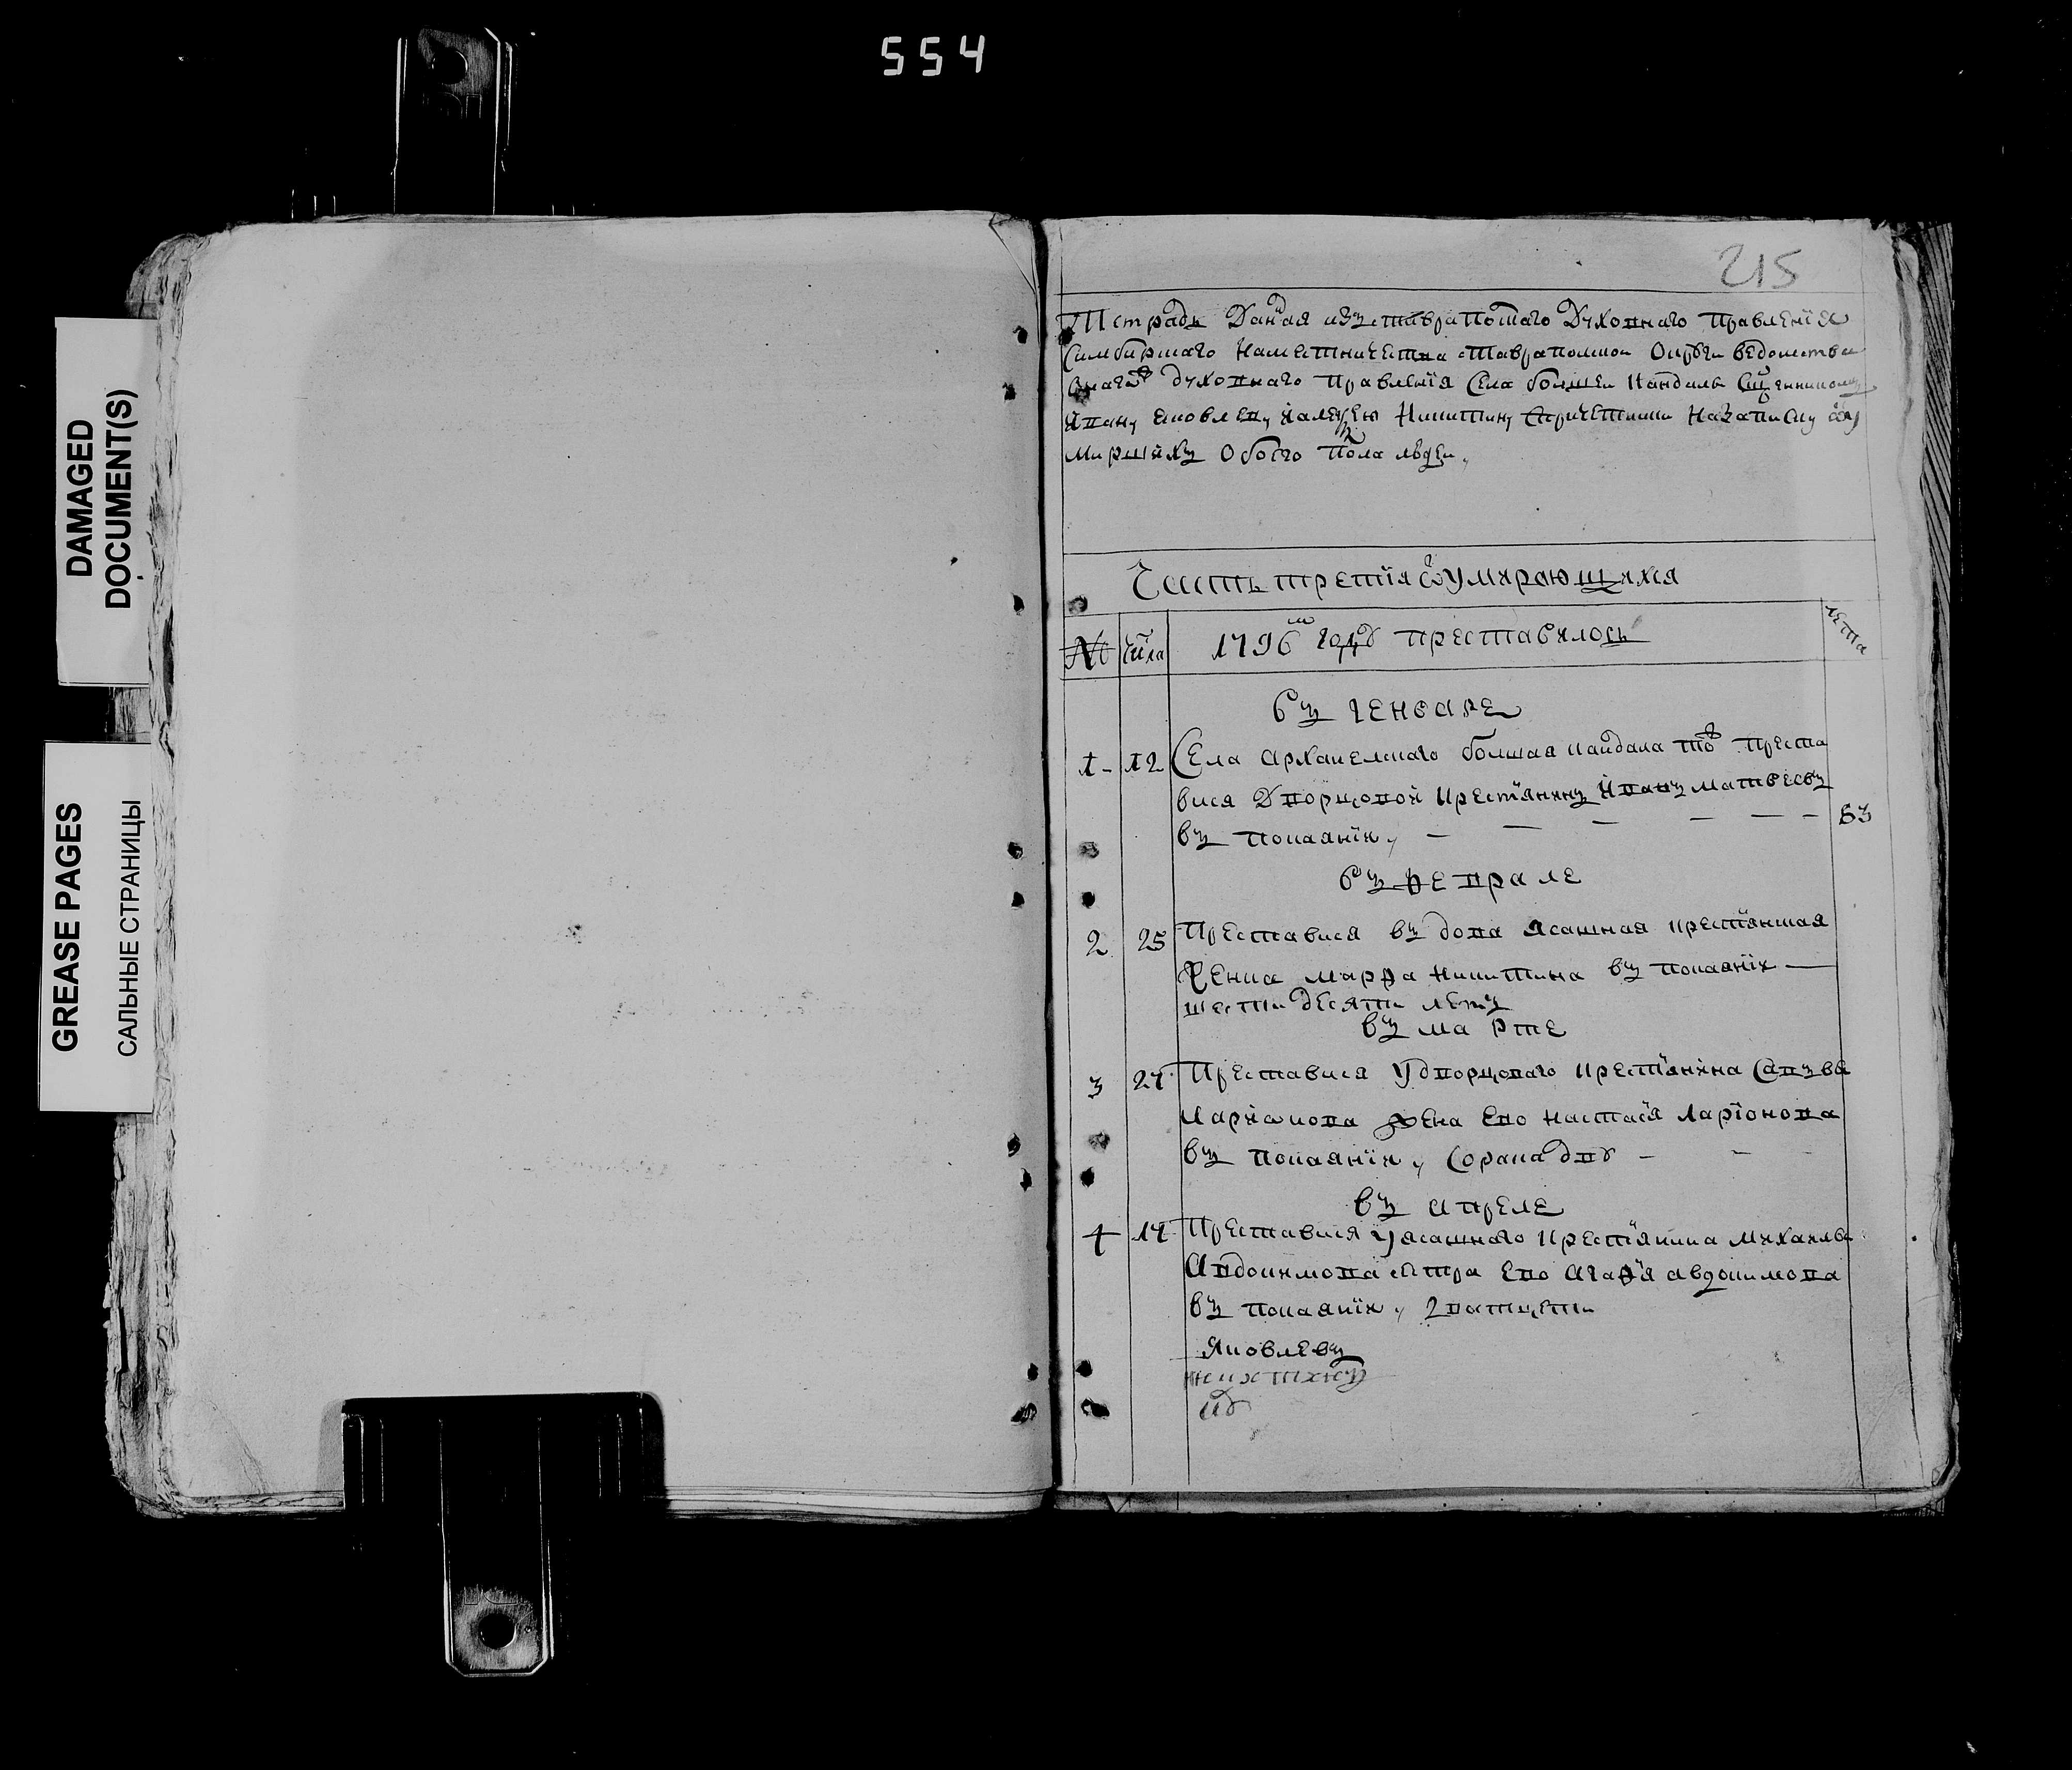 554
DAMAGED
DOCUMENT(S)
GREASE PAGES
САЛЬНЫЕ СТРАНИЦЫ
215
Тетрадь Даная изъ ставрапольскаго Духовнаго Правленїя
Симбирскаго Наместничества ставрапольской Округи ведомства
онаго духовнаго Правленїя Села большей Кандалы Священникомъ
Ивану Яковлеву Алеѯею Никитину Спричетники Назаписку
мирскихъ Обоего Пола людей
Часть третїя ѡ умирающихся
№
числа
1796 году преставилось
лета
въ генваре
1
12
Села Архангелскаго большая кандала то преста
вися Дворцовой крестьянинъ Иванъ матвеевъ
въ покаянїи
53
въ феврале
2
25
Преставися въ дова Ясашная крестьянская
Женка марфа никитина въ покаянїи
шести десяти летъ
въ марте
3
27
Преставися У дворцоваго крестьянина Савъва
Ларїѡнова жена Ево настасїя Ларїонова
въ покаянїи, Сорака дву
въ апреле
4
17
Преставися у ясашнаго крестьянина михаила
Авдокимова сестра Ево агафїя авдокимова
въ покаянїи, дватцети
Яковлевъ